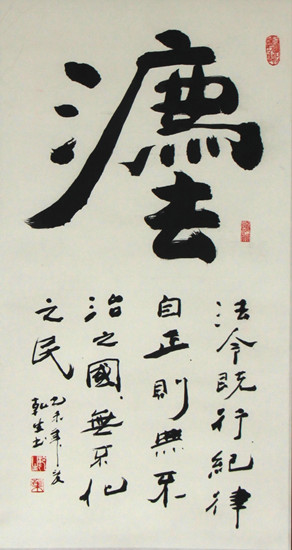 灋
法令既行紀律
自正則無不
治之國無不化
之民
乙未年